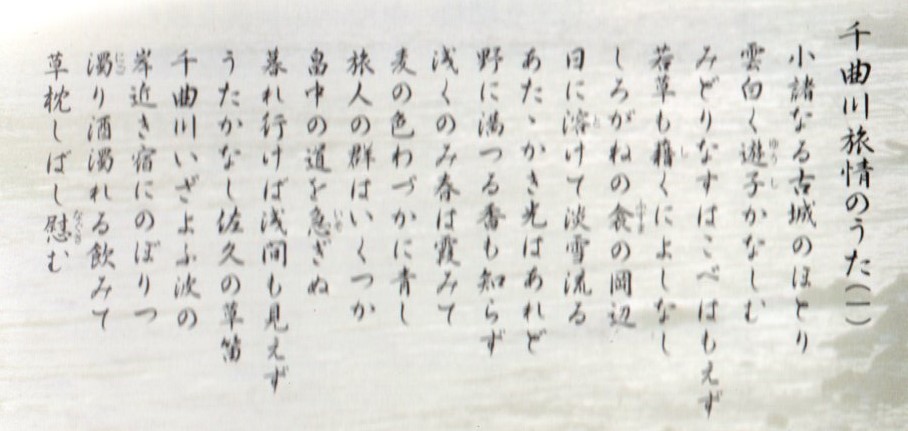 千曲川旅情のうた(一)
小諸なる古城のほとり
雲白く遊子かなしむ
みどりなすはこべはもえず
若草も籍くによしなし
しろがねの衾の岡辺
日に溶けて淡雪流る
あたゝかき光はあれど
野に満つる香も知らず
浅くのみ春は霞みて
麦の色わづかに青し
旅人の群はいくつか
畠中の道を急ぎぬ
暮れ行けば浅間も見えず
うたかなし佐久の草笛
千曲川いざよふ波の
岸近き宿にのぼりつ
濁り酒濁れる飲みて
草枕しばし慰む